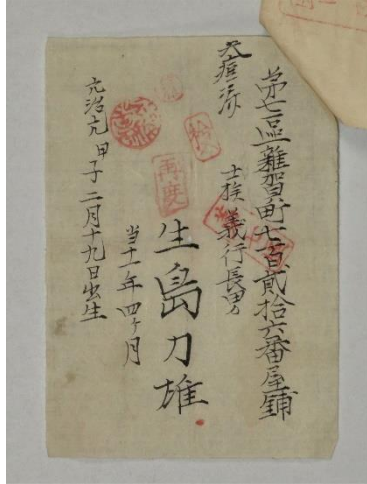 第七區雜賀町七百貳拾六番屋鋪
士族義行長男
天痘済
生島刀雄
当十一年四ヶ月
元治元甲子二月十九日出生
再度